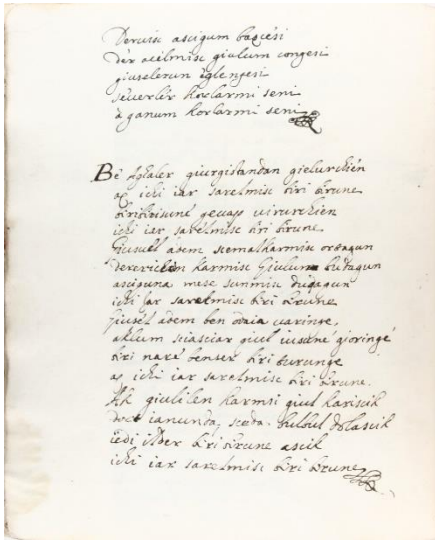 Dervisc ascigum baqcesi
Der acelmisc giulum congesi
giuselerun eglengesi
severler korlarmi seni
a ganum korlarmi seni
Be Aghaler giurgistandan gielurchien
ac ichi iar sarelmisc biri birune
biribirisune gevap virurchien
ichi iar sarelmisc biri birune
Giusel adem scemalkarmisc ortagun
dererichen karmisc Giulun budagun
asciguna mese sunmisc dudagun
ichi Jar sarelmisc biri birune
Giusel adem ben odaia varinge,
aklum sciasciar giul iusune gioringe
biri nare benser biri turunge
ac ichi iar sarelmisc biri birune.
Ak giulilen karmsi giul kariscik
doct ianunda, bulbul dolascik
iedi ilder biri birune ascik
ichi iar sarelmisc biri birune